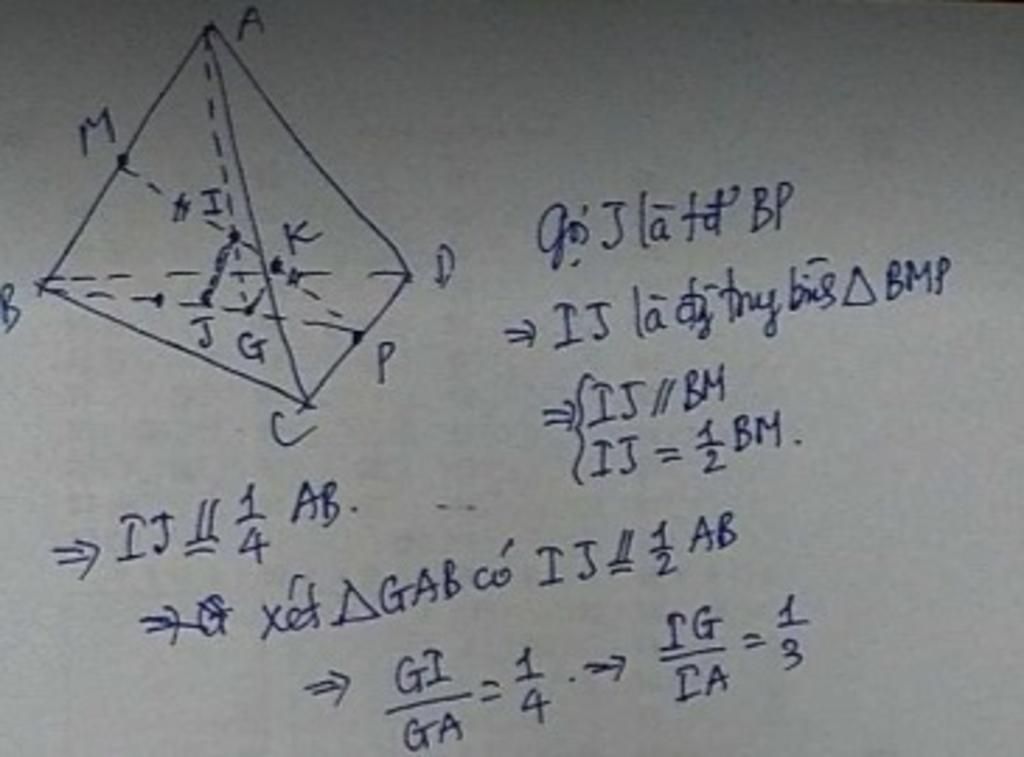 A
M
I
K
B
D
J
G
P
C
Gọi J là tđ BP
⇒ IJ là đg trung bình △BMP
⇒ { IJ // BM
IJ = 1/2 BM.
⇒ IJ // = 1/4 AB.
⇒ xét △GAB có IJ // = 1/2 AB
⇒ GI/GA = 1/4 . ⇒ IG/IA = 1/3